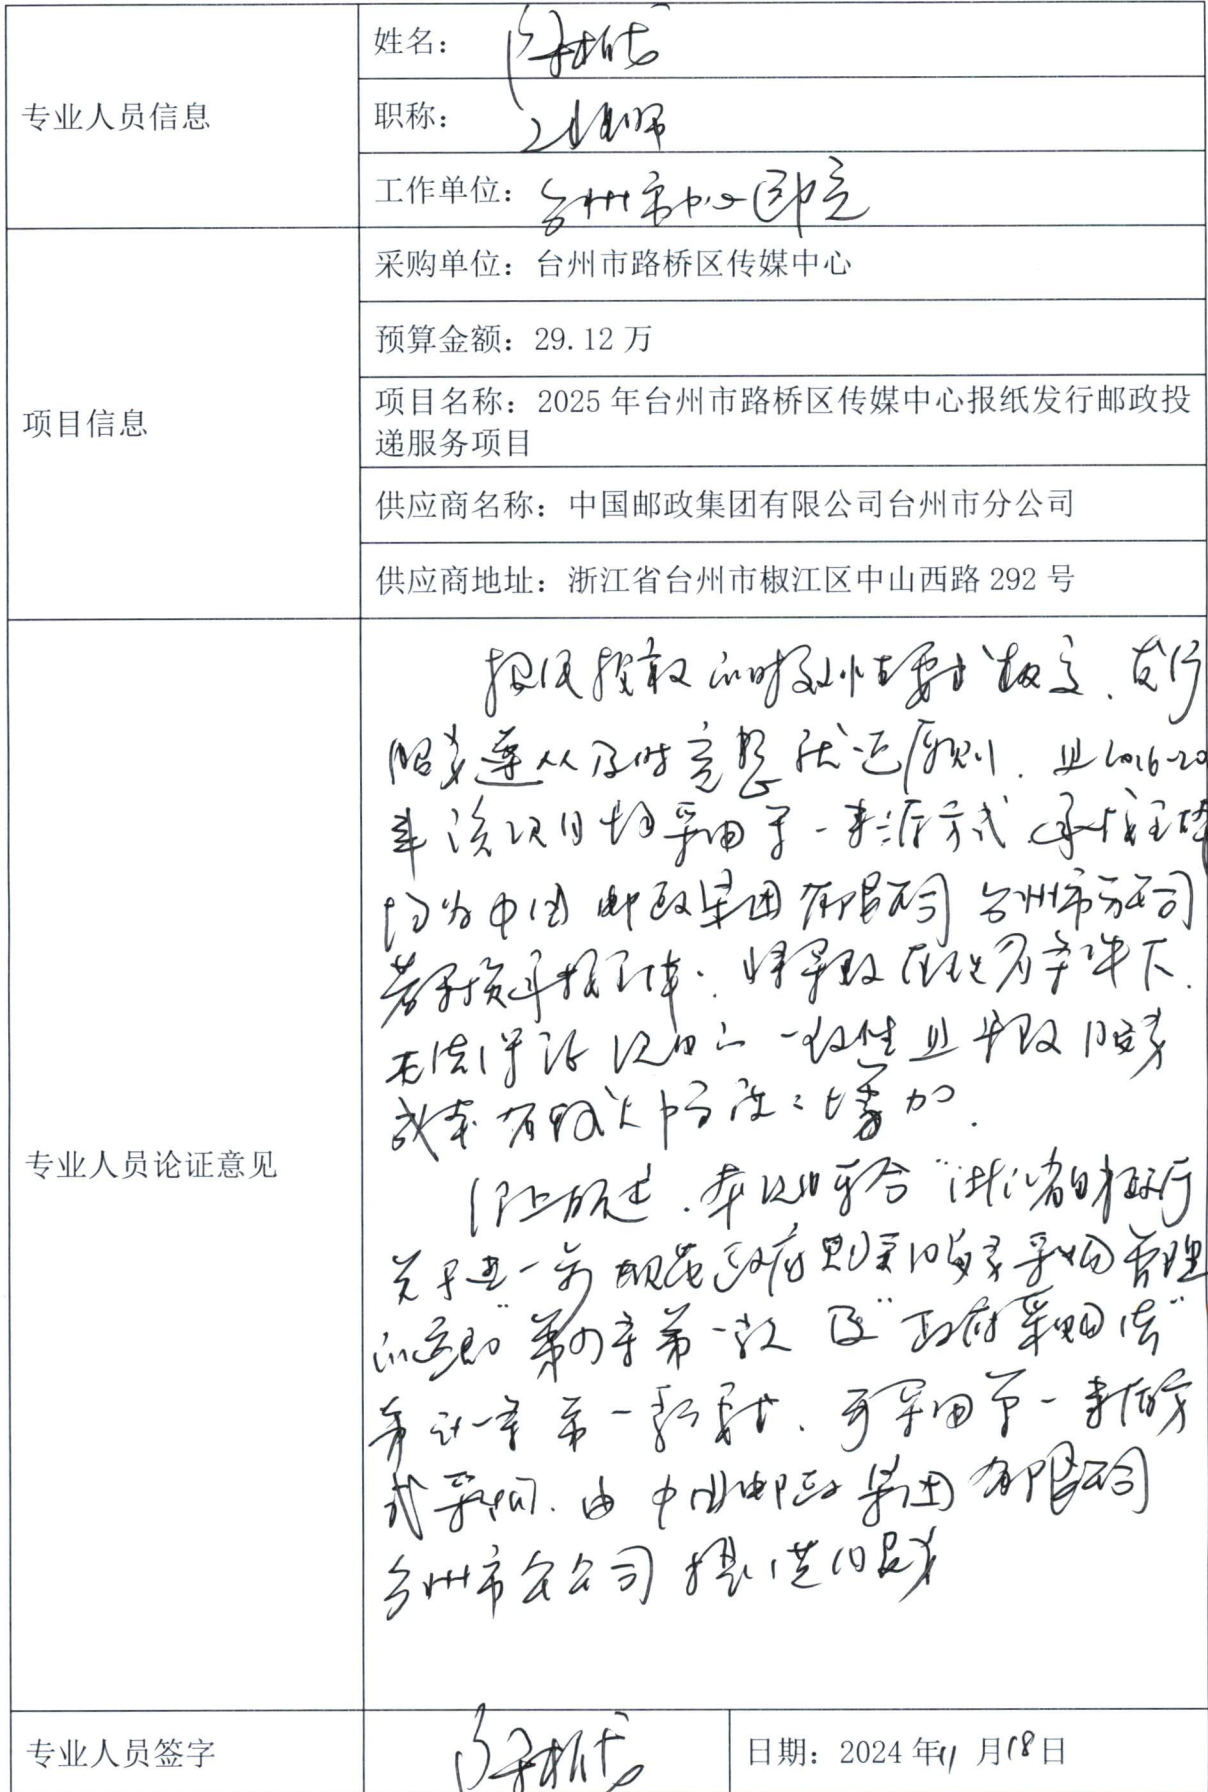 专业人员信息
姓名：
职称：工程师
工作单位：台州市中心医院
项目信息
采购单位：台州市路桥区传媒中心
预算金额：29.12 万
项目名称：2025 年台州市路桥区传媒中心报纸发行邮政投
递服务项目
供应商名称：中国邮政集团有限公司台州市分公司
供应商地址：浙江省台州市椒江区中山西路 292 号
专业人员论证意见
报纸投递的时效性要求极高、发行
服务遵从及时完整原则、且2016-20
年该项目均采用单一来源方式 承接主体
均为中国邮政集团有限公司台州市分公司
若承接主体、将导致在现有条件下、
无法保证项目的一致性且导致服务
成本有较大幅度的增加.
综上所述、本项目符合“浙江省财政厅
关于进一步规范政府采购管理
的通知”第四章第一款 及“政府采购法”
第三十一条第一款要求、可采用单一来源方
式采购、由中国邮政集团有限公司
台州市分公司提供服务
专业人员签字
日期：2024 年 11 月 18 日